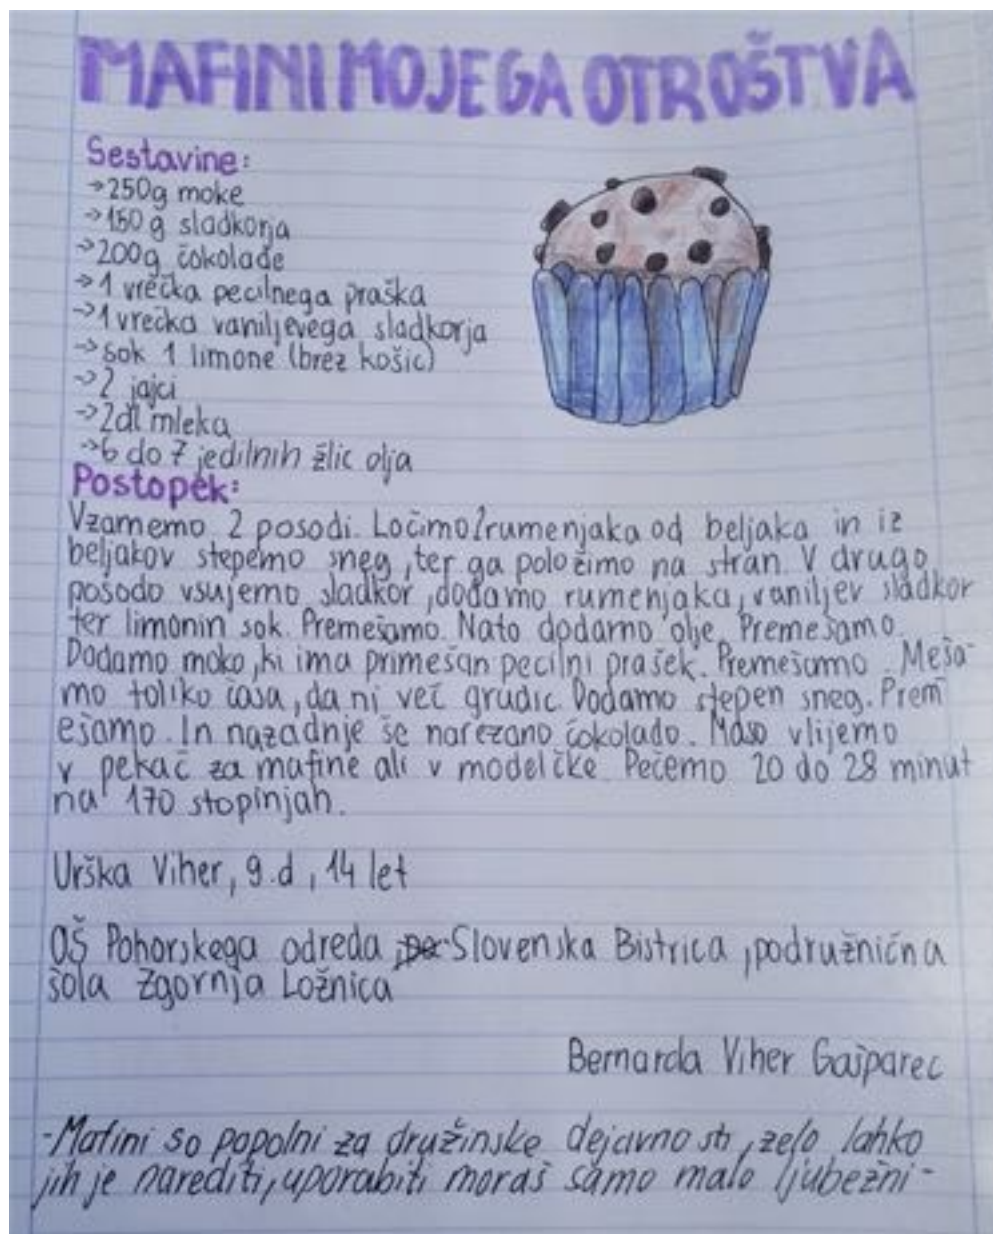 MAFINI MOJEGA OTROŠTVA
Sestavine:
→250g moke
→150 g sladkorja
→200g čokolade
→1 vrečka pecilnega praška
→1 vrečka vaniljevega sladkorja
→sok 1 limone (brez košic)
→2 jajci
→2dl mleka
→6 do 7 jedilnih žlic olja
Postopek:
Vzamemo 2 posodi. Ločimo rumenjaka od beljaka in iz
beljakov stepemo sneg, ter ga položimo na stran. V drugo
posodo vsujemo sladkor, dodamo rumenjaka, vaniljev sladkor
ter limonin sok. Premešamo. Nato dodamo olje. Premešamo.
Dodamo moko, ki ima primešan pecilni prašek. Premešamo. Meša-
mo toliko časa, da ni več grudic. Dodamo stepen sneg. Prem
ešamo. In nazadnje še narezano čokolado. Maso vlijemo
v pekač za mafine ali v modelčke. Pečemo 20 do 28 minut
na 170 stopinjah.
Urška Viher, 9.d, 14 let
OŠ Pohorskega odreda, Slovenska Bistrica, podružnična
šola Zgornja Ložnica
Bernarda Viher Gašparec
-Mafini so popolni za družinske dejavnosti, zelo lahko
jih je narediti, uporabiti moraš samo malo ljubezni-